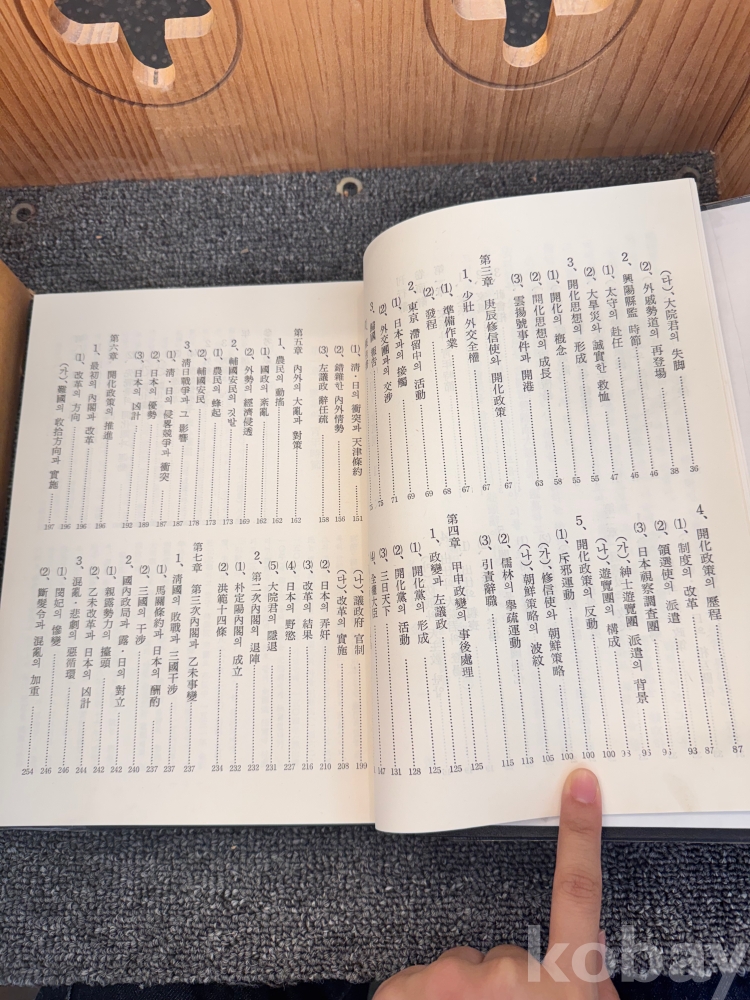 (나)、大院君의 失脚 36
⑵、外戚勢道의 再登場 38
2、興陽縣監 時節 46
⑴、太守의 赴任 46
⑵、大旱災와 誠實한 救恤 47
3、開化思想의 形成 55
⑴、開化의 槪念 55
⑵、開化思想의 成長 58
⑶、雲揚號事件과 開港 63
第三章 庚辰修信使와 開化政策 67
1、少壯 外交全權 67
⑴、準備作業 68
⑵、發程 69
2、東京 滯留中의 活動 69
⑴、日本과의 接觸 71
⑵、外交團과의 交涉 75
3、歸國 報告 75
4、開化政策의 歷程 87
⑴、制度의 改革 87
⑵、領選使의 派遣 93
⑶、日本視察調査團 93
(가)、紳士遊覽團 派遣의 背景 93
(나)、遊覽團의 構成 98
5、開化政策의 反動 100
⑴、斥邪運動 100
(가)、修信使와 朝鮮策略 103
(나)、朝鮮策略의 波紋 105
⑵、儒林의 擧疏運動 113
⑶、引責辭職 115
第四章 甲申政變의 事後處理 125
1、政變과 左議政 125
⑴、開化黨의 形成 125
⑵、開化黨의 活動 128
⑶、三日天下 131
⑷、全權大臣 147
⑴、淸·日의 衝突과 天津條約 151
⑵、錯雜한 內外情勢 156
⑶、左議政 辭任疏 158
第五章 內外의 大亂과 對策 162
1、農民의 動搖 162
⑴、國政의 紊亂 162
⑵、外勢의 經濟侵透 169
2、輔國安民의 깃발 173
⑴、農民의 蜂起 173
⑵、輔國安民 178
3、淸日戰爭과 그 影響 187
⑴、淸·日의 侵略競爭과 衝突 187
⑵、日本의 優勢 189
⑶、日本의 凶計 192
第六章 開化政策의 推進 196
1、最初의 內閣과 改革 196
⑴、改革의 方向 196
(가)、難國의 收拾方向과 實施 197
(나)、議政府 官制 199
(다)、改革의 實施 208
⑵、日本의 弄奸 210
⑶、改革의 結果 216
⑷、日本의 野慾 227
⑸、大院君의 隱退 231
2、第二次內閣의 退陣 232
⑴、朴定陽內閣의 成立 232
⑵、洪範十四條 234
第七章 第三次內閣과 乙未事變 237
1、淸國의 敗戰과 三國干涉 237
⑴、馬關條約과 日本의 酬酌 237
⑵、三國의 干涉 240
2、國內政局과 露·日의 對立 242
⑴、親露勢力의 擡頭 242
⑵、乙未改革과 日本의 凶計 244
3、混亂·悲劇의 惡循環 246
⑴、閔妃의 慘變 246
⑵、斷髮令과 混亂의 加重 254
kobay